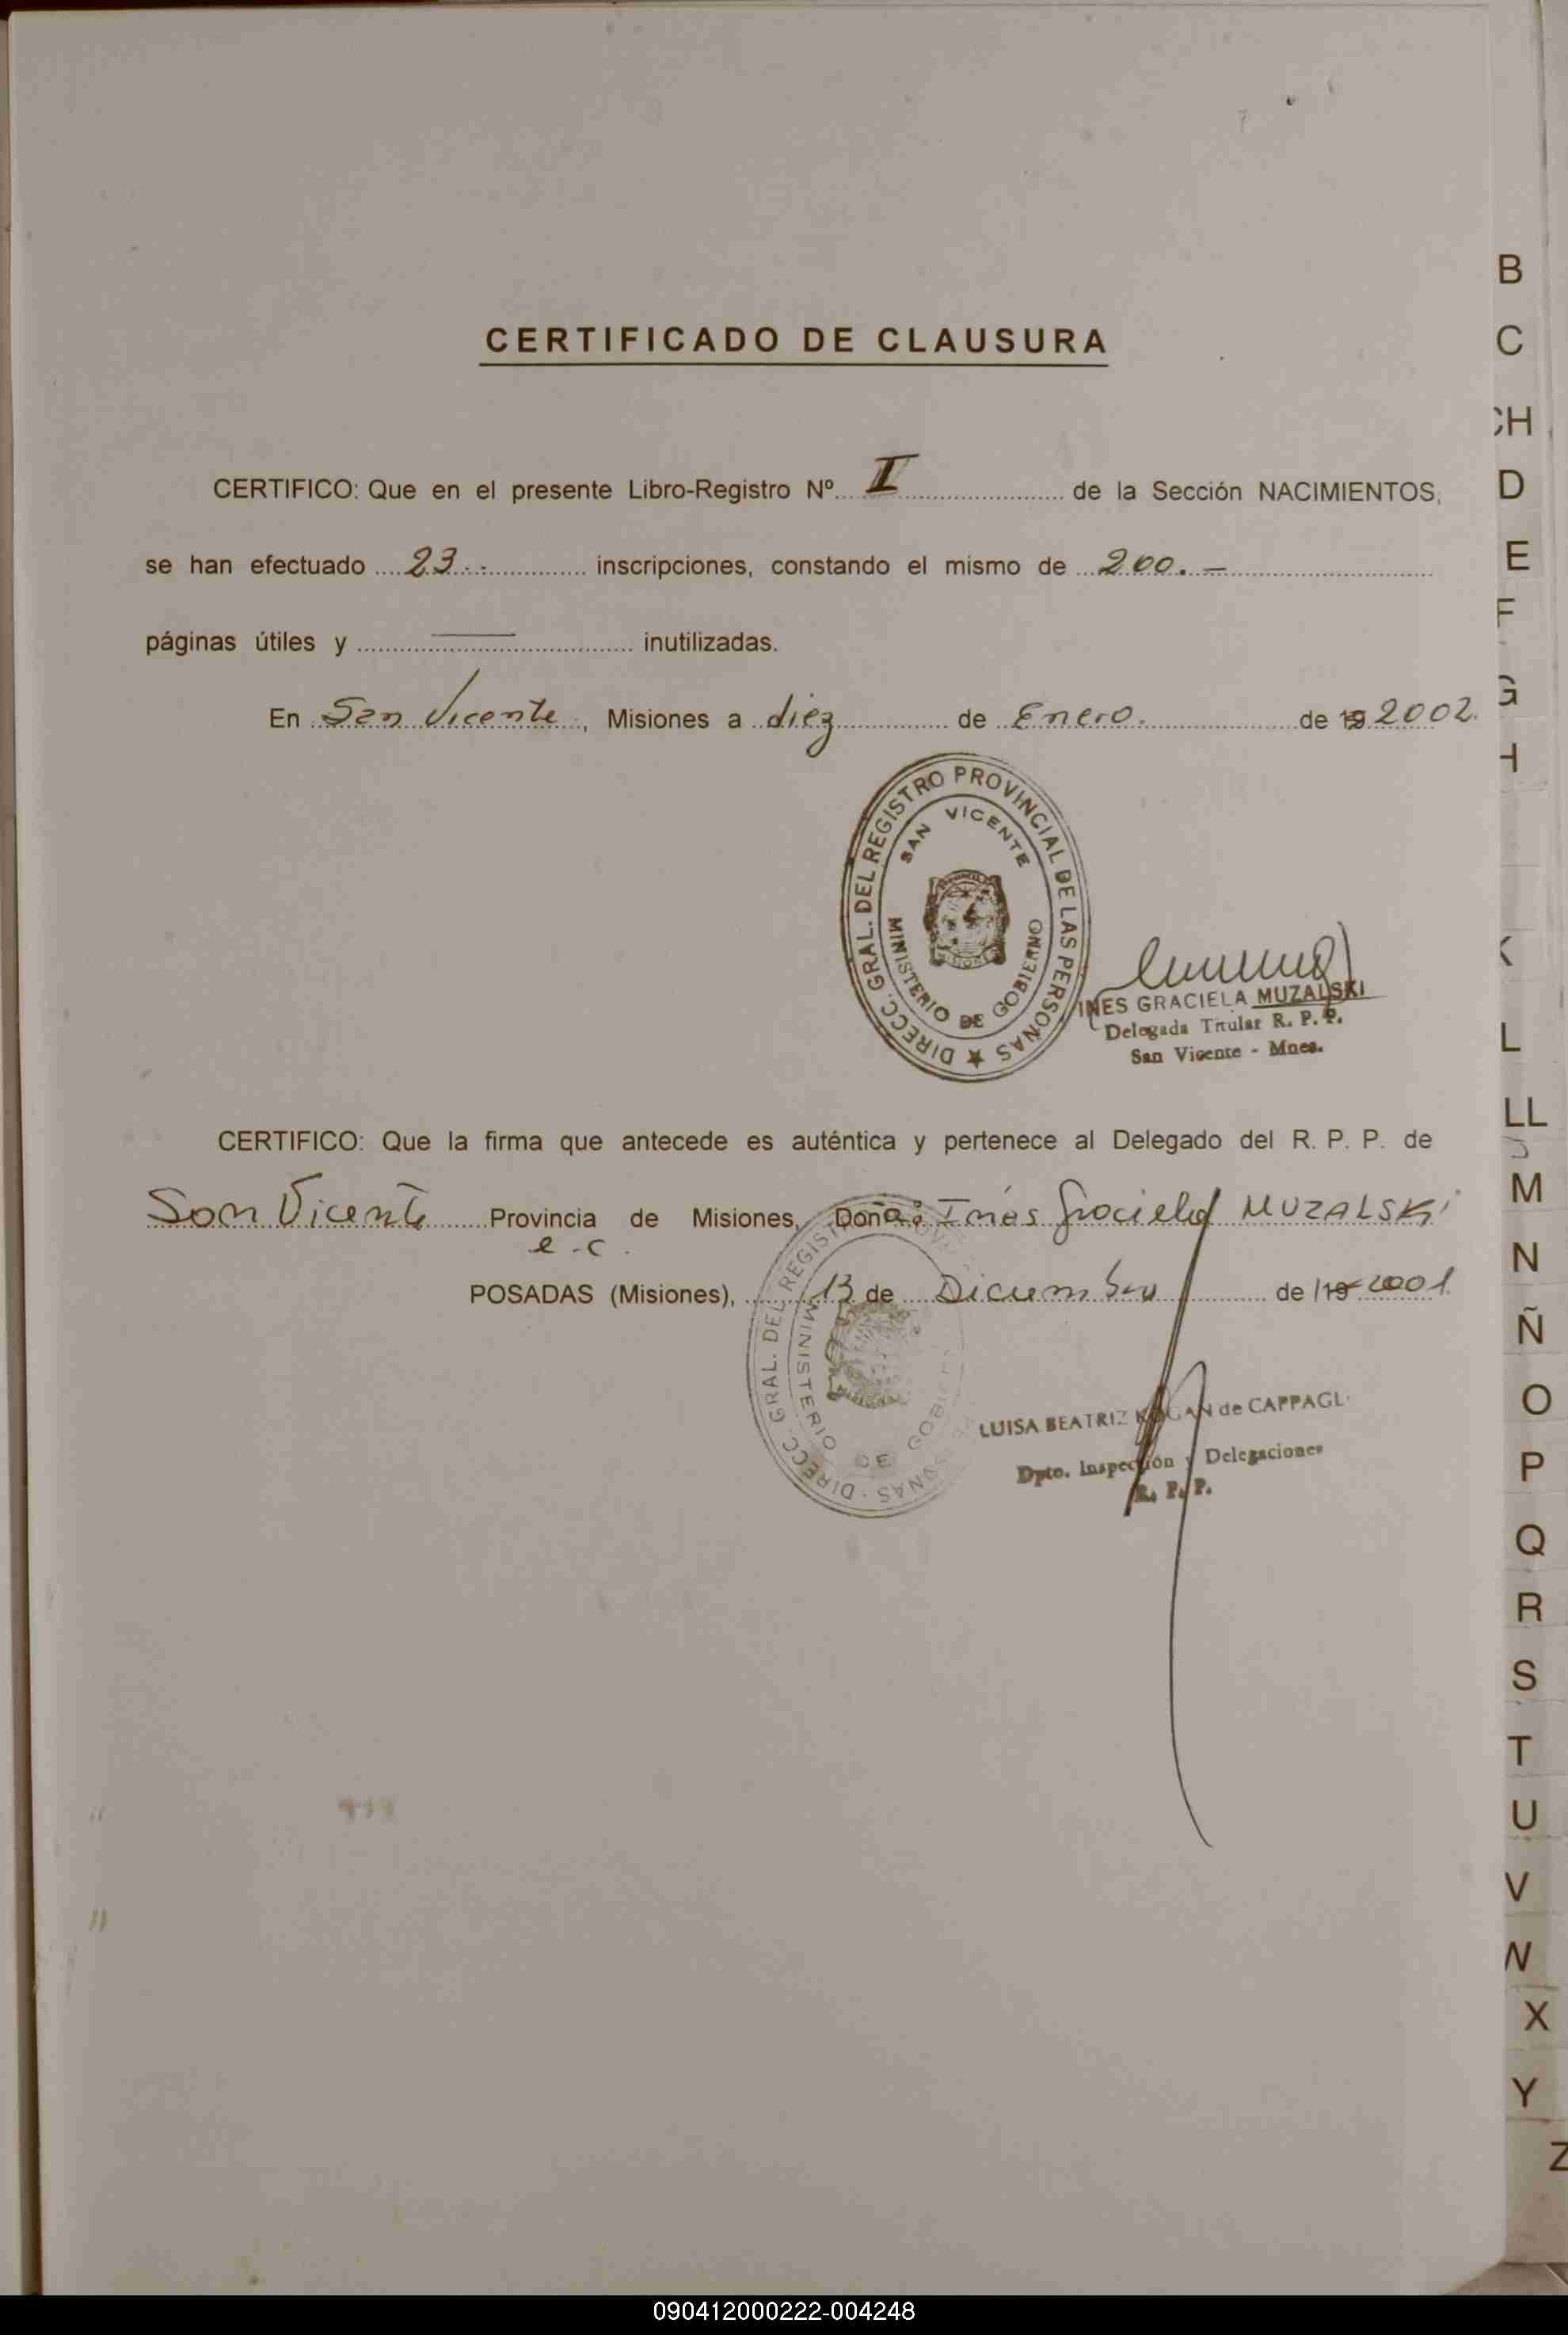 CERTIFICADO DE CLAUSURA
CERTIFICO: Que en el presente Libro-Registro Nº... I ... de la Sección NACIMIENTOS,
se han efectuado ... 23.- ... inscripciones, constando el mismo de ... 200.- ...
páginas útiles y ... — ... inutilizadas.
En San Vicente, Misiones a diez de Enero. de 19 2002.
DIRECC. GRAL. DEL REGISTRO PROVINCIAL DE LAS PERSONAS
SAN VICENTE
MINISTERIO DE GOBIERNO
INES GRACIELA MUZALSKI
Delegada Titular R. P. P.
San Vicente - Mnes.
CERTIFICO: Que la firma que antecede es auténtica y pertenece al Delegado del R. P. P. de
San Vicente Provincia de Misiones, Doña: Inés Graciela MUZALSKI
e.c.
POSADAS (Misiones), 13 de Diciembre de 19 2001.
DIRECC. GRAL. DEL REGIST
MINISTERIO DE GOBI
LUISA BEATRIZ KOGAN de CAPPAGL
Dpto. Inspección y Delegaciones
R. P. P.
B
C
CH
D
E
F
G
H
K
L
LL
M
N
Ñ
O
P
Q
R
S
T
U
V
W
X
Y
Z
090412000222-004248